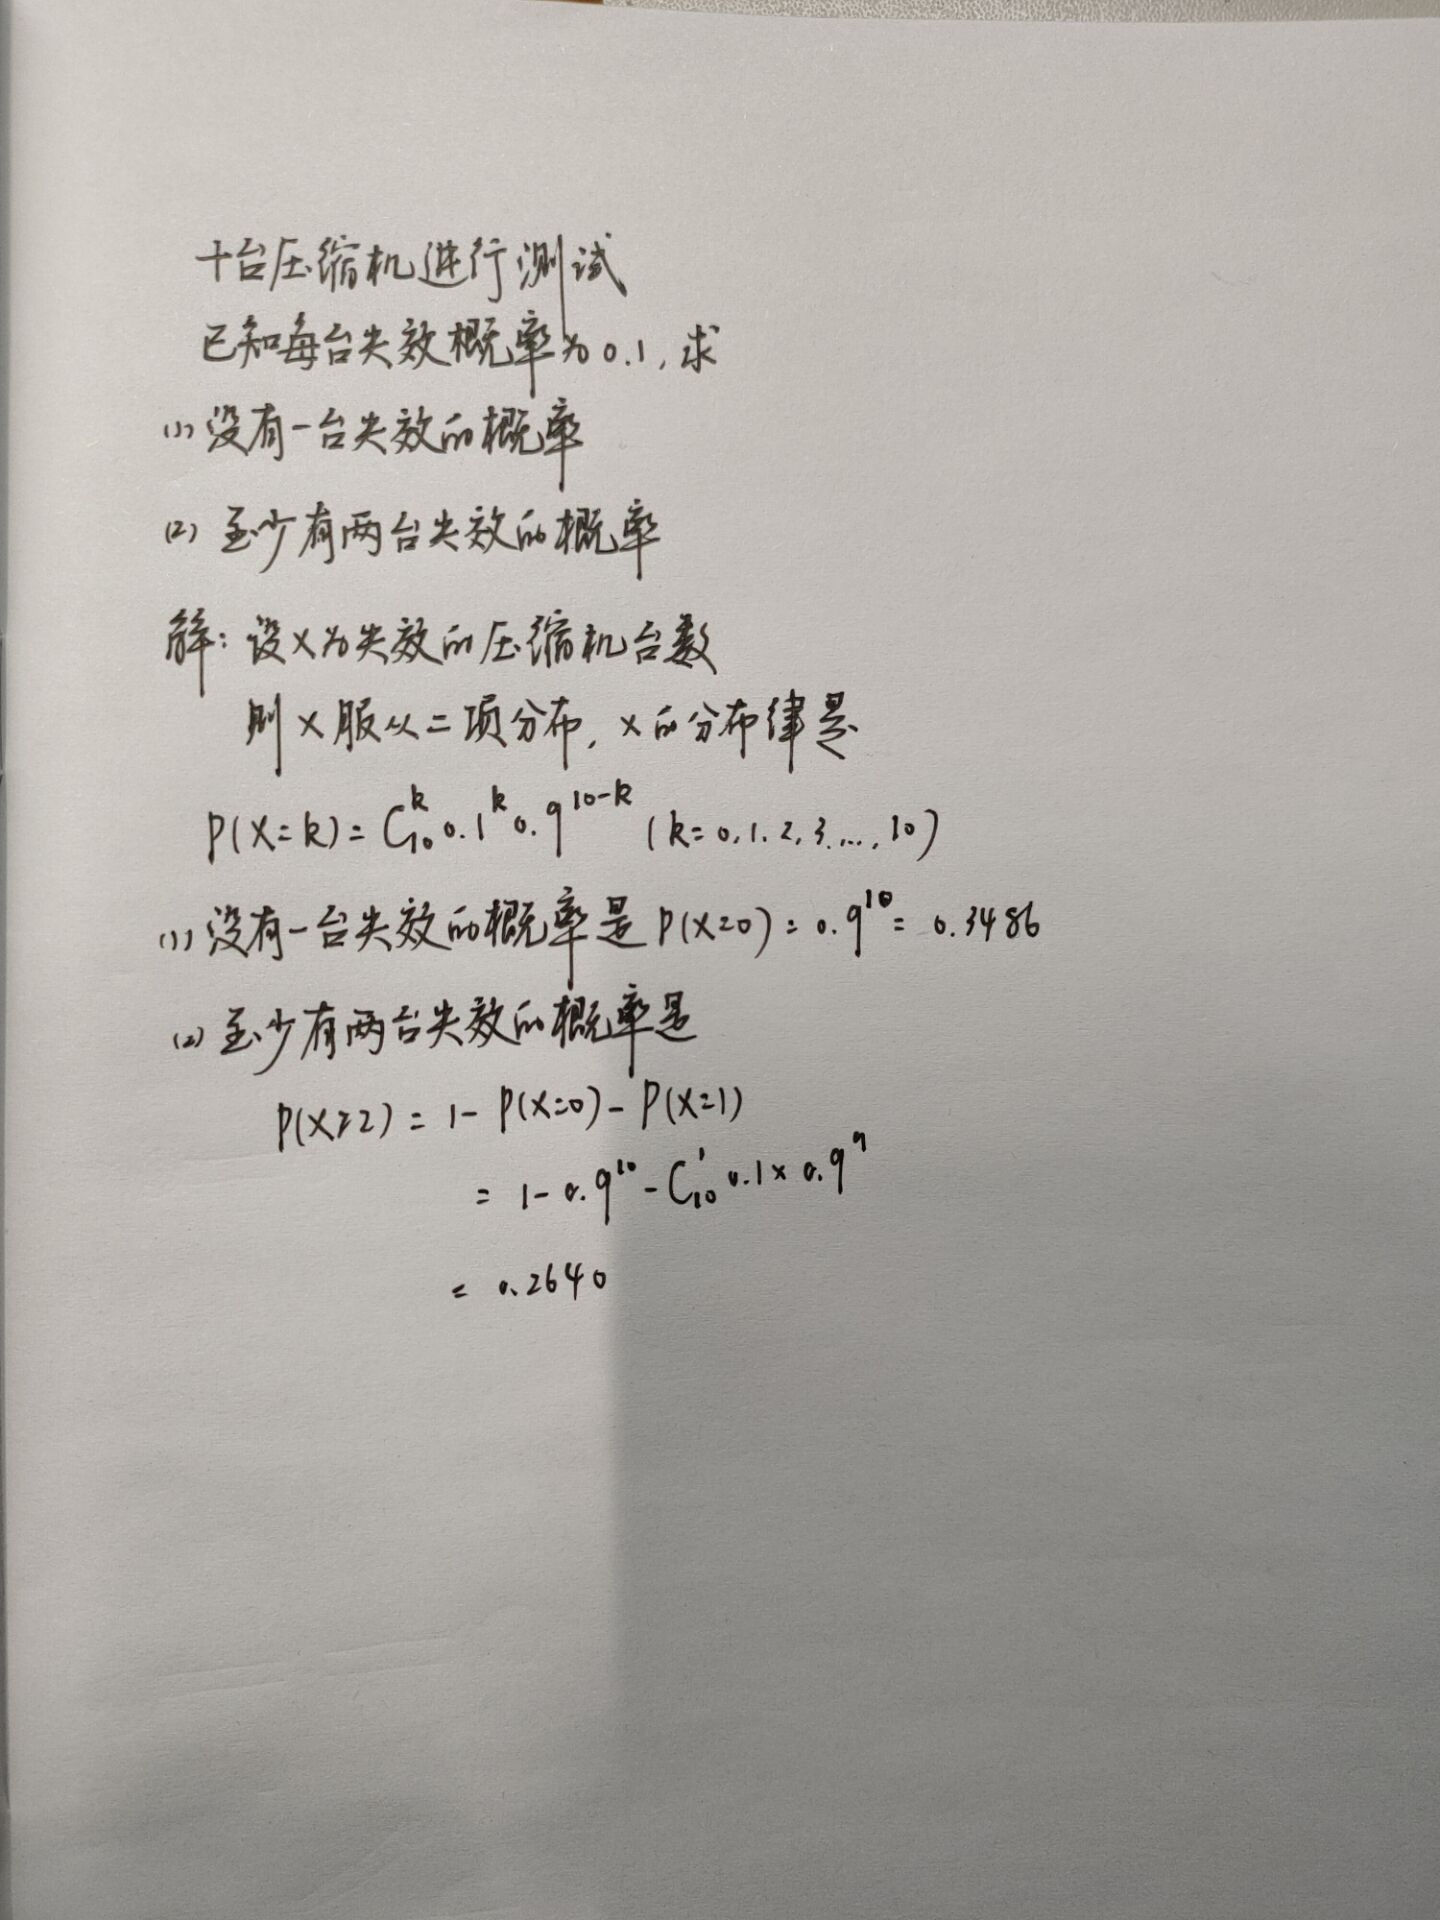 十台压缩机进行测试
已知每台失效概率为0.1,求
(1)没有一台失效的概率
(2)至少有两台失效的概率
解:设X为失效的压缩机台数
则X服从二项分布,X的分布律是
P(X=k)=C₁₀ᵏ0.1ᵏ0.9¹⁰⁻ᵏ(k=0,1.2,3...,10)
(1)没有一台失效的概率是P(X=0)=0.9¹⁰=0.3486
(2)至少有两台失效的概率是
P(X≥2)=1-P(X=0)-P(X=1)
=1-0.9¹⁰-C₁₀¹0.1×0.9⁹
=0.2640